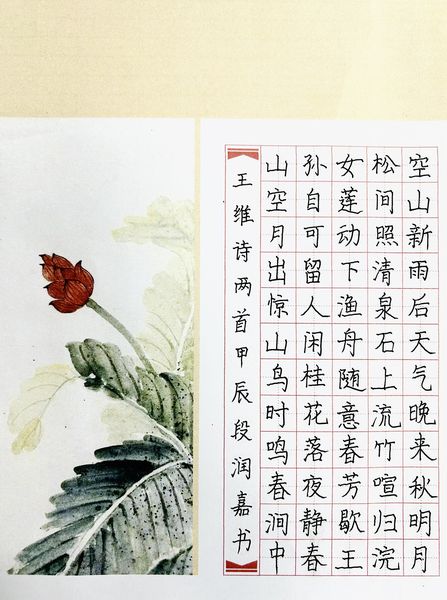 空山新雨后天气晚来秋明月
松间照清泉石上流竹喧归浣
女莲动下渔舟随意春芳歇王
孙自可留人闲桂花落夜静春
山空月出惊山鸟时鸣春涧中
王维诗两首甲辰段润嘉书